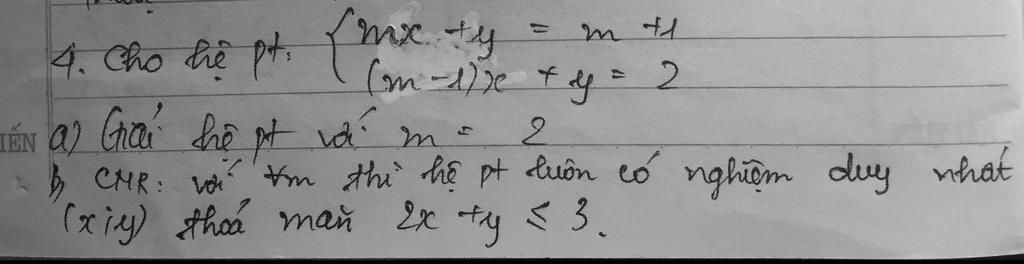 4. Cho hệ pt: { mx + y = m + 1
(m - 1)x + y = 2
IẾN
a) Giải hệ pt với m = 2
b, CMR: với ∀m thì hệ pt luôn có nghiệm duy nhất
(x;y) thoả mãn 2x + y ≤ 3.